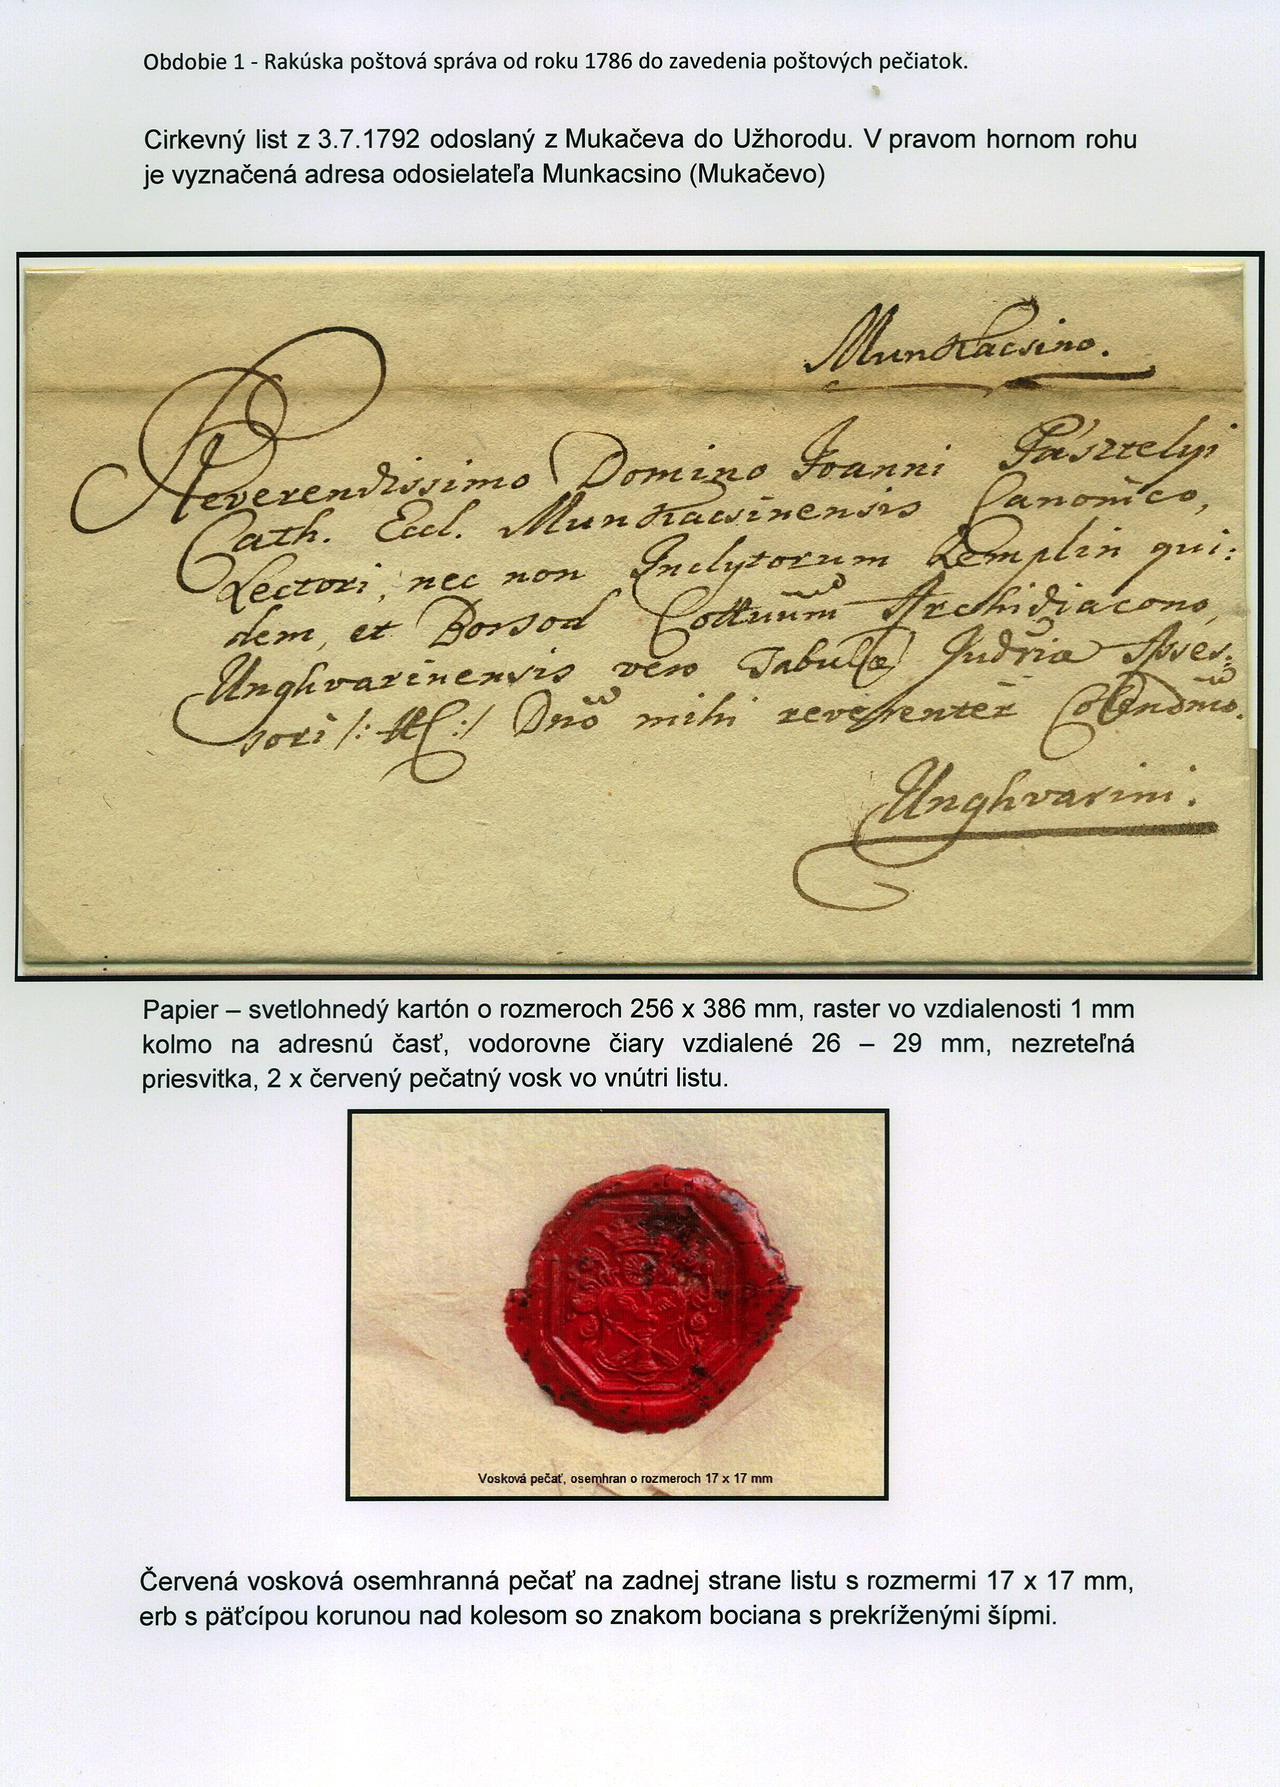 Obdobie 1 - Rakúska poštová správa od roku 1786 do zavedenia poštových pečiatok.
Cirkevný list z 3.7.1792 odoslaný z Mukačeva do Užhorodu. V pravom hornom rohu
je vyznačená adresa odosielateľa Munkacsino (Mukačevo)
Munkacsino.
Reverendissimo Domino Joanni Pásztelyi
Cath. Eccl. Munkacsinensis Canonico,
Lectori, nec non Inclytorum Zemplin qui:
dem, et Borsod Cottuum Archidiacono,
Unghvarinensis vero Tabulæ Judria Asses:
sori /: :/ Dnō mihi reverenter Colendmo.
Unghvarini.
Papier – svetlohnedý kartón o rozmeroch 256 x 386 mm, raster vo vzdialenosti 1 mm
kolmo na adresnú časť, vodorovne čiary vzdialené 26 – 29 mm, nezreteľná
priesvitka, 2 x červený pečatný vosk vo vnútri listu.
Vosková pečať, osemhran o rozmeroch 17 x 17 mm
Červená vosková osemhranná pečať na zadnej strane listu s rozmermi 17 x 17 mm,
erb s päťcípou korunou nad kolesom so znakom bociana s prekríženými šípmi.